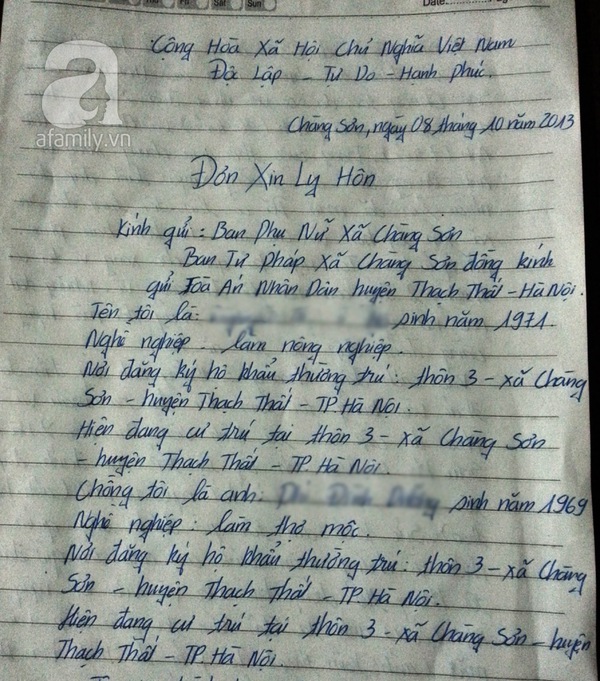 Thu Fri Sat Sun Date:
Cộng Hòa Xã Hội Chủ Nghĩa Việt Nam
Độ Lập - Tự Do - Hạnh Phúc.
a
afamily.vn
Chàng Sơn, ngày 08 tháng 10 năm 2013
Đơn Xin Ly Hôn
Kính gửi: Ban Phụ Nữ Xã Chàng Sơn
Ban Tư Pháp Xã Chàng Sơn đồng kính
gửi Toà Án Nhân Dân huyện Thạch Thất - Hà Nội.
Tên tôi là: sinh năm 1971.
Nghề nghiệp: làm nông nghiệp.
Nơi đăng ký hộ khẩu thường trú: thôn 3 - xã Chàng
Sơn - huyện Thạch Thất - TP. Hà Nội.
Hiện đang cư trú tại thôn 3 - xã Chàng Sơn
- huyện Thạch Thất - TP. Hà Nội.
Chồng tôi là anh: sinh năm 1969
Nghề nghiệp: làm thợ mộc.
Nơi đăng ký hộ khẩu thường trú: thôn 3 - xã Chàng
Sơn - huyện Thạch Thất - TP. Hà Nội.
Hiện đang cư trú tại thôn 3 - xã Chàng Sơn - huyện
Thạch Thất - TP. Hà Nội.